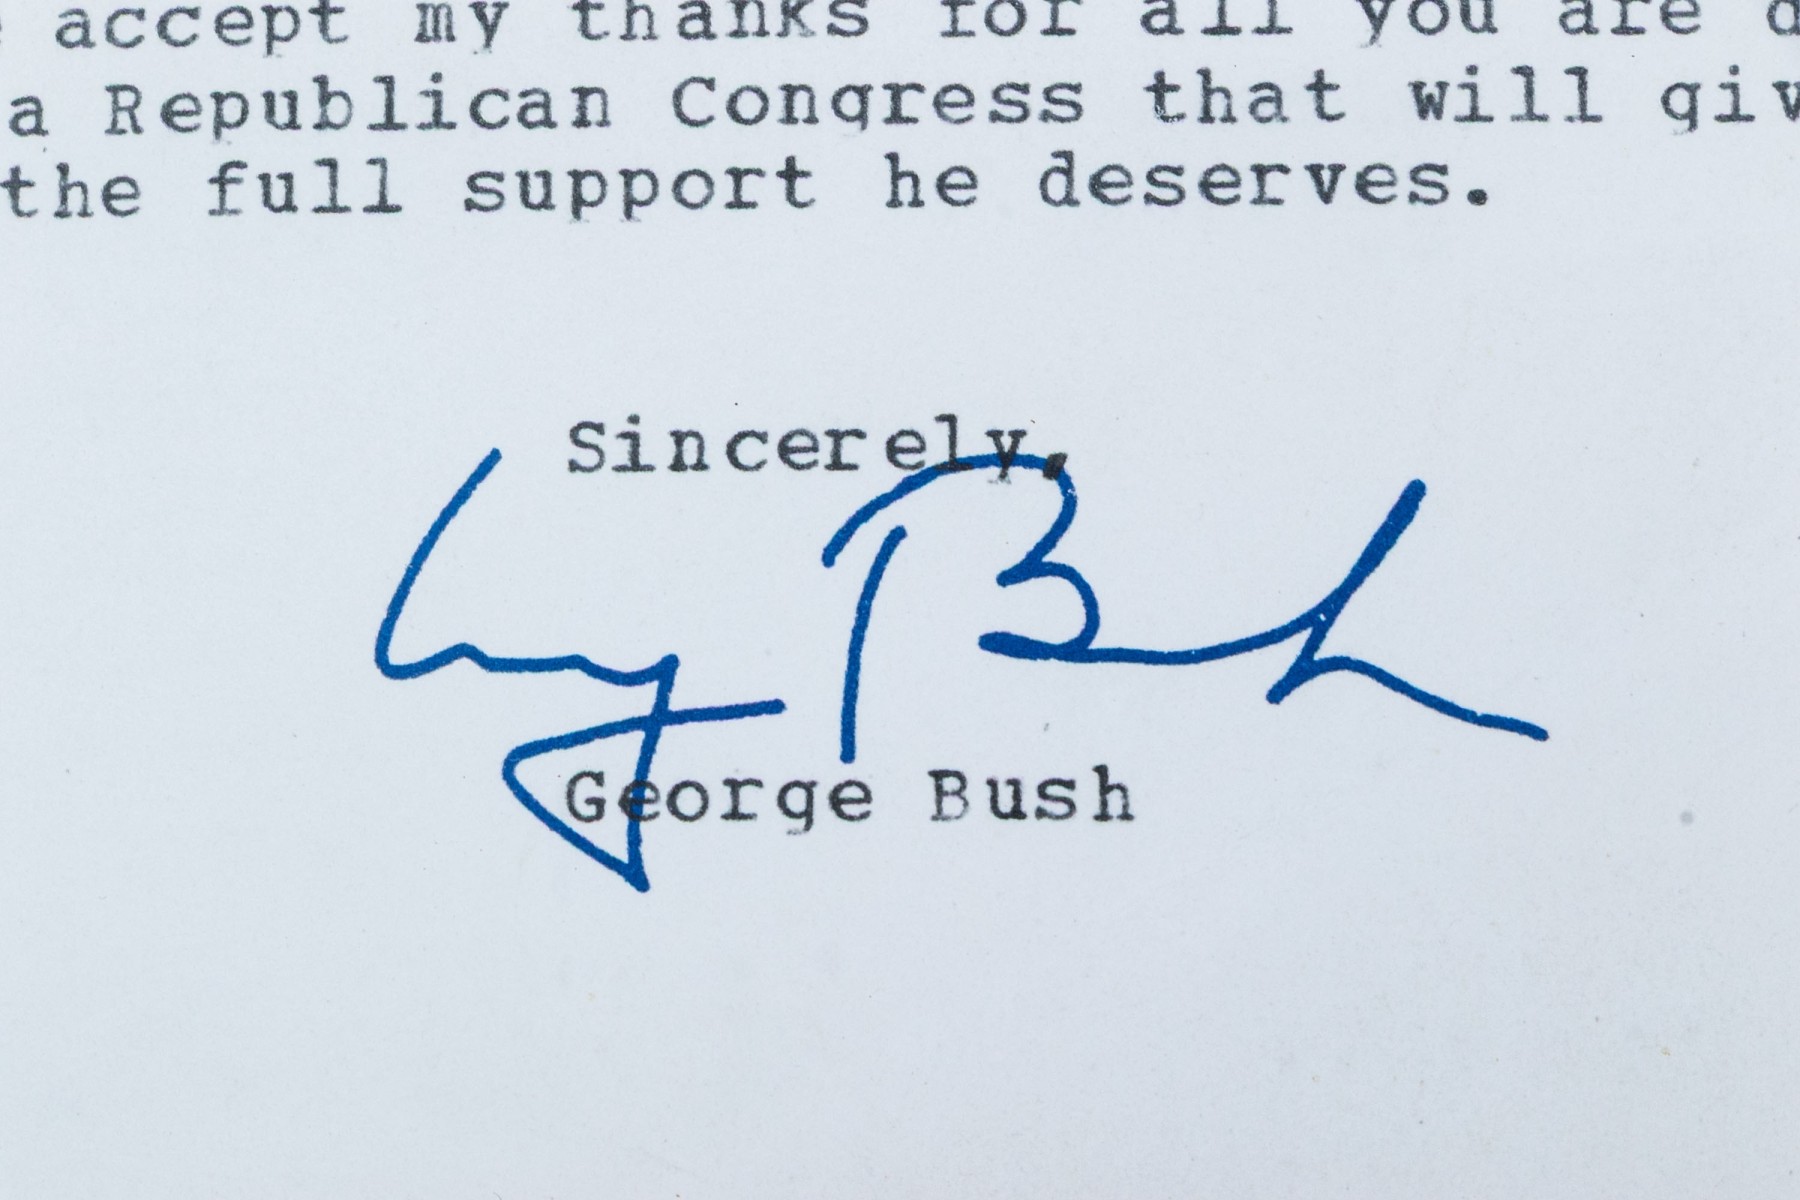 accept my thanks for all you are
a Republican Congress that will giv
the full support he deserves.
Sincerely,
George Bush
George Bush